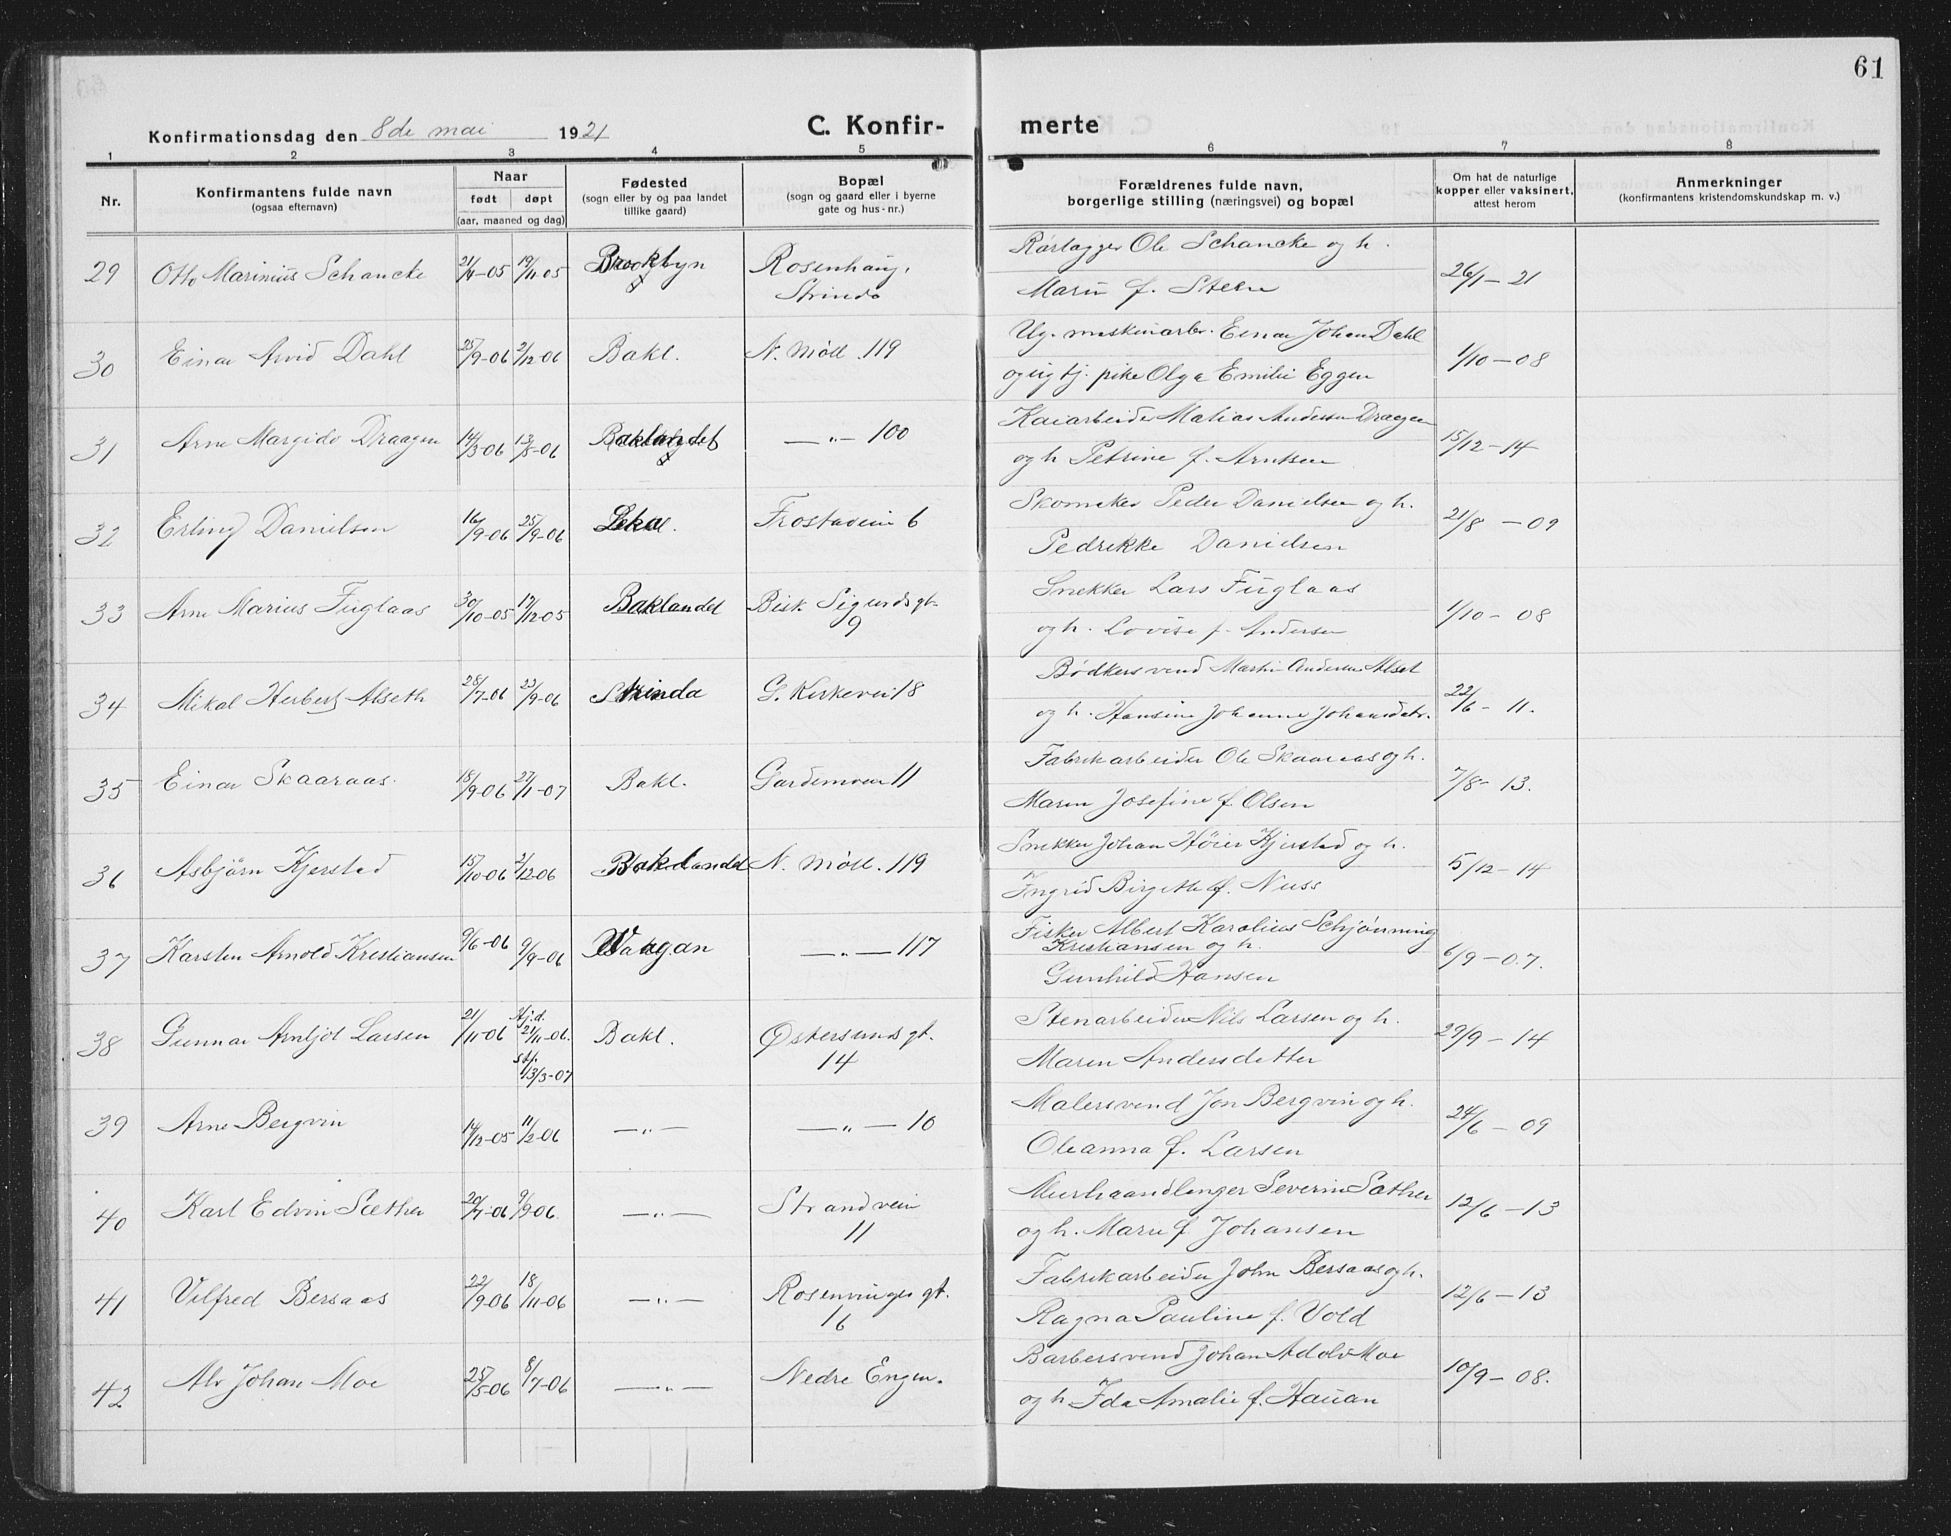 61
Konfirmationsdag den 8de mai 1921
C. Konfir- merte
1 2 3 4 5 6 7 8
Nr.
Konfirmantens fulde navn
(ogsaa efternavn)
Naar
født døpt
(aar, maaned og dag)
Fødested
(sogn eller by og paa landet
tillike gaard)
Bopæl
(sogn og gaard eller i byerne
gate og hus-nr.)
Forældrenes fulde navn,
borgerlige stilling (næringsvei) og bopæl
Om hat de naturlige
kopper eller vaksinert,
attest herom
Anmerkninger
(konfirmantens kristendomskundskap m. v.)
29 Otto Marinius Schancke 19/11-05 Rosenhaug, Strinda
Rørlægger Ole Schancke og h.
f. Steen
26/1-21
30 Einar Arvid Dahl 25/9-06 2/12-06 Bakl. N. Møll. 119
Ug. maskinarb. Einar Johan Dahl
og ug tj. pike Olga Emilie Eggen
1/10-08
31 Arne Margido Draagen 14/3-06 13/8-06 Baklandet —„— 100
Kaiarbeider Matias Andersen Draagen
og h Petrine f. Arntsen
15/12-14
32 Erling Danielsen 16/9-06 25/9-06 Frostaveien 6
Skomaker Peder Danielsen og h.
Pedrikke Danielsen
21/8-09
33 Arne Marius Fuglaas 30/10-05 17/12-05 Baklandet Bisk Sigurds gt. 9
Snekker Lars Fuglaas
og h. Lovise f. Andersen
1/10-08
34 Mikal Herbert Alseth 28/7-06 23/9-06 Strinda G. Kirkevei 18
Bødkersvend Martin Andersen Alset
og h. Hansine Johanne Johansdatr.
22/6-11.
35 Einar Skaaraas. 18/9-06 27/1-07 Bakl. Gardemoen 11
Fabrikarbeider Ole Skaaraas og h.
Maren Josefine f. Olsen
7/8-13.
36 Asbjørn Kjerstad 15/10-06 2/12-06 Baklandet N. Møll. 119
Snekker Johan Høier Kjerstad og h.
Ingrid Birgitte f. Nuss
5/12-14
37 Karsten Arnold Kristiansen 9/6-06 9/9-06 Vaagan —„— 117
Fisker Albert Karolius Schjønning
Kristiansen og h.
Gunhild Hansen
6/9-07.
38 Gunnar Arnljot Larsen 21/11-06 Hj.d. 21/11-06. st. 13/3-07 Bakl. Østersunds gt. 14
Stenarbeider Nils Larsen og h.
Maren Andersdatter
29/9-14
39 Arne Bergvin 14/12-05 11/2-06 —„— —„— 10
Malersvend Jon Bergvin og h.
Oleanna f. Larsen
24/6-09
40 Karl Edvin Sæther 20/7-06 9/9-06 —„— Strandvein 11
Murhaandlanger Severin Sæther
og h. Marie f Johansen
12/6-13
41 Vilfred Bersaas 22/9-06 18/11-06 —„— Rosenvinges gt. 16
Fabrikarbeider John Bersaas og h.
Ragna Pauline f. Vold
12/6-13
42 Alv Johan Moe 25/5-06 8/7-06 —„— Nedre Engen.
Barbersvend Johan Adolv Moe
og h Ida Amalie f. Hauan
10/9-08.